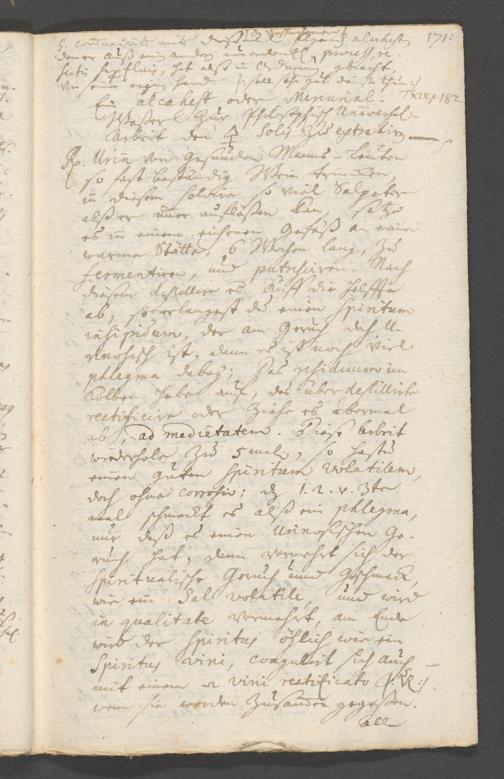 171.
Ein alcahest oder Menstrual-
Waßer zur Philosophisch Universal-
Arbeit den 🜍 Solis zu extrahirn —
Rp. Urin von gesunden Manns-Leuten
so fast beständig Wein trincken,
in diesem solvire so viel Salpeter
alß er nur aufleßen kan, setze
es in einem eichenen Gefäß an eine
warme Stätte, 6 Wochen lang, zu
fermentiren, und putreficiren. Nach
diesem destillire es auff die Helffte
ab, so erlangest du einen Spiritum
insipidum, der am Geruch doch U-
rinosisch ist, dann es ist noch viel
phlegma dabey; das residuum im
Kolben hebe auf, das überdestillirte
rectificire oder ziehe es abermal
ab, ad medietatem. Diese Arbeit
wiederhole zu 5 mal, so hastu
einen guten Spiritum volatilem,
doch ohne corrosiv; 1. 2. v. 3te
mal schmeckt es alß ein phlegma,
nur daß es einen Urinosischen Ge-
ruch hat, dann vermehrt sich der
Spiritualische Geruch und Geschmack,
wie ein Sal volatile und wird
in qualitate vermehrt, am Ende
wird der Spiritus öhlich wie ein
Spiritus vini, coagulirt sich auch
mit einem vini rectificato
wenn sie werden zusammen gegoßen.